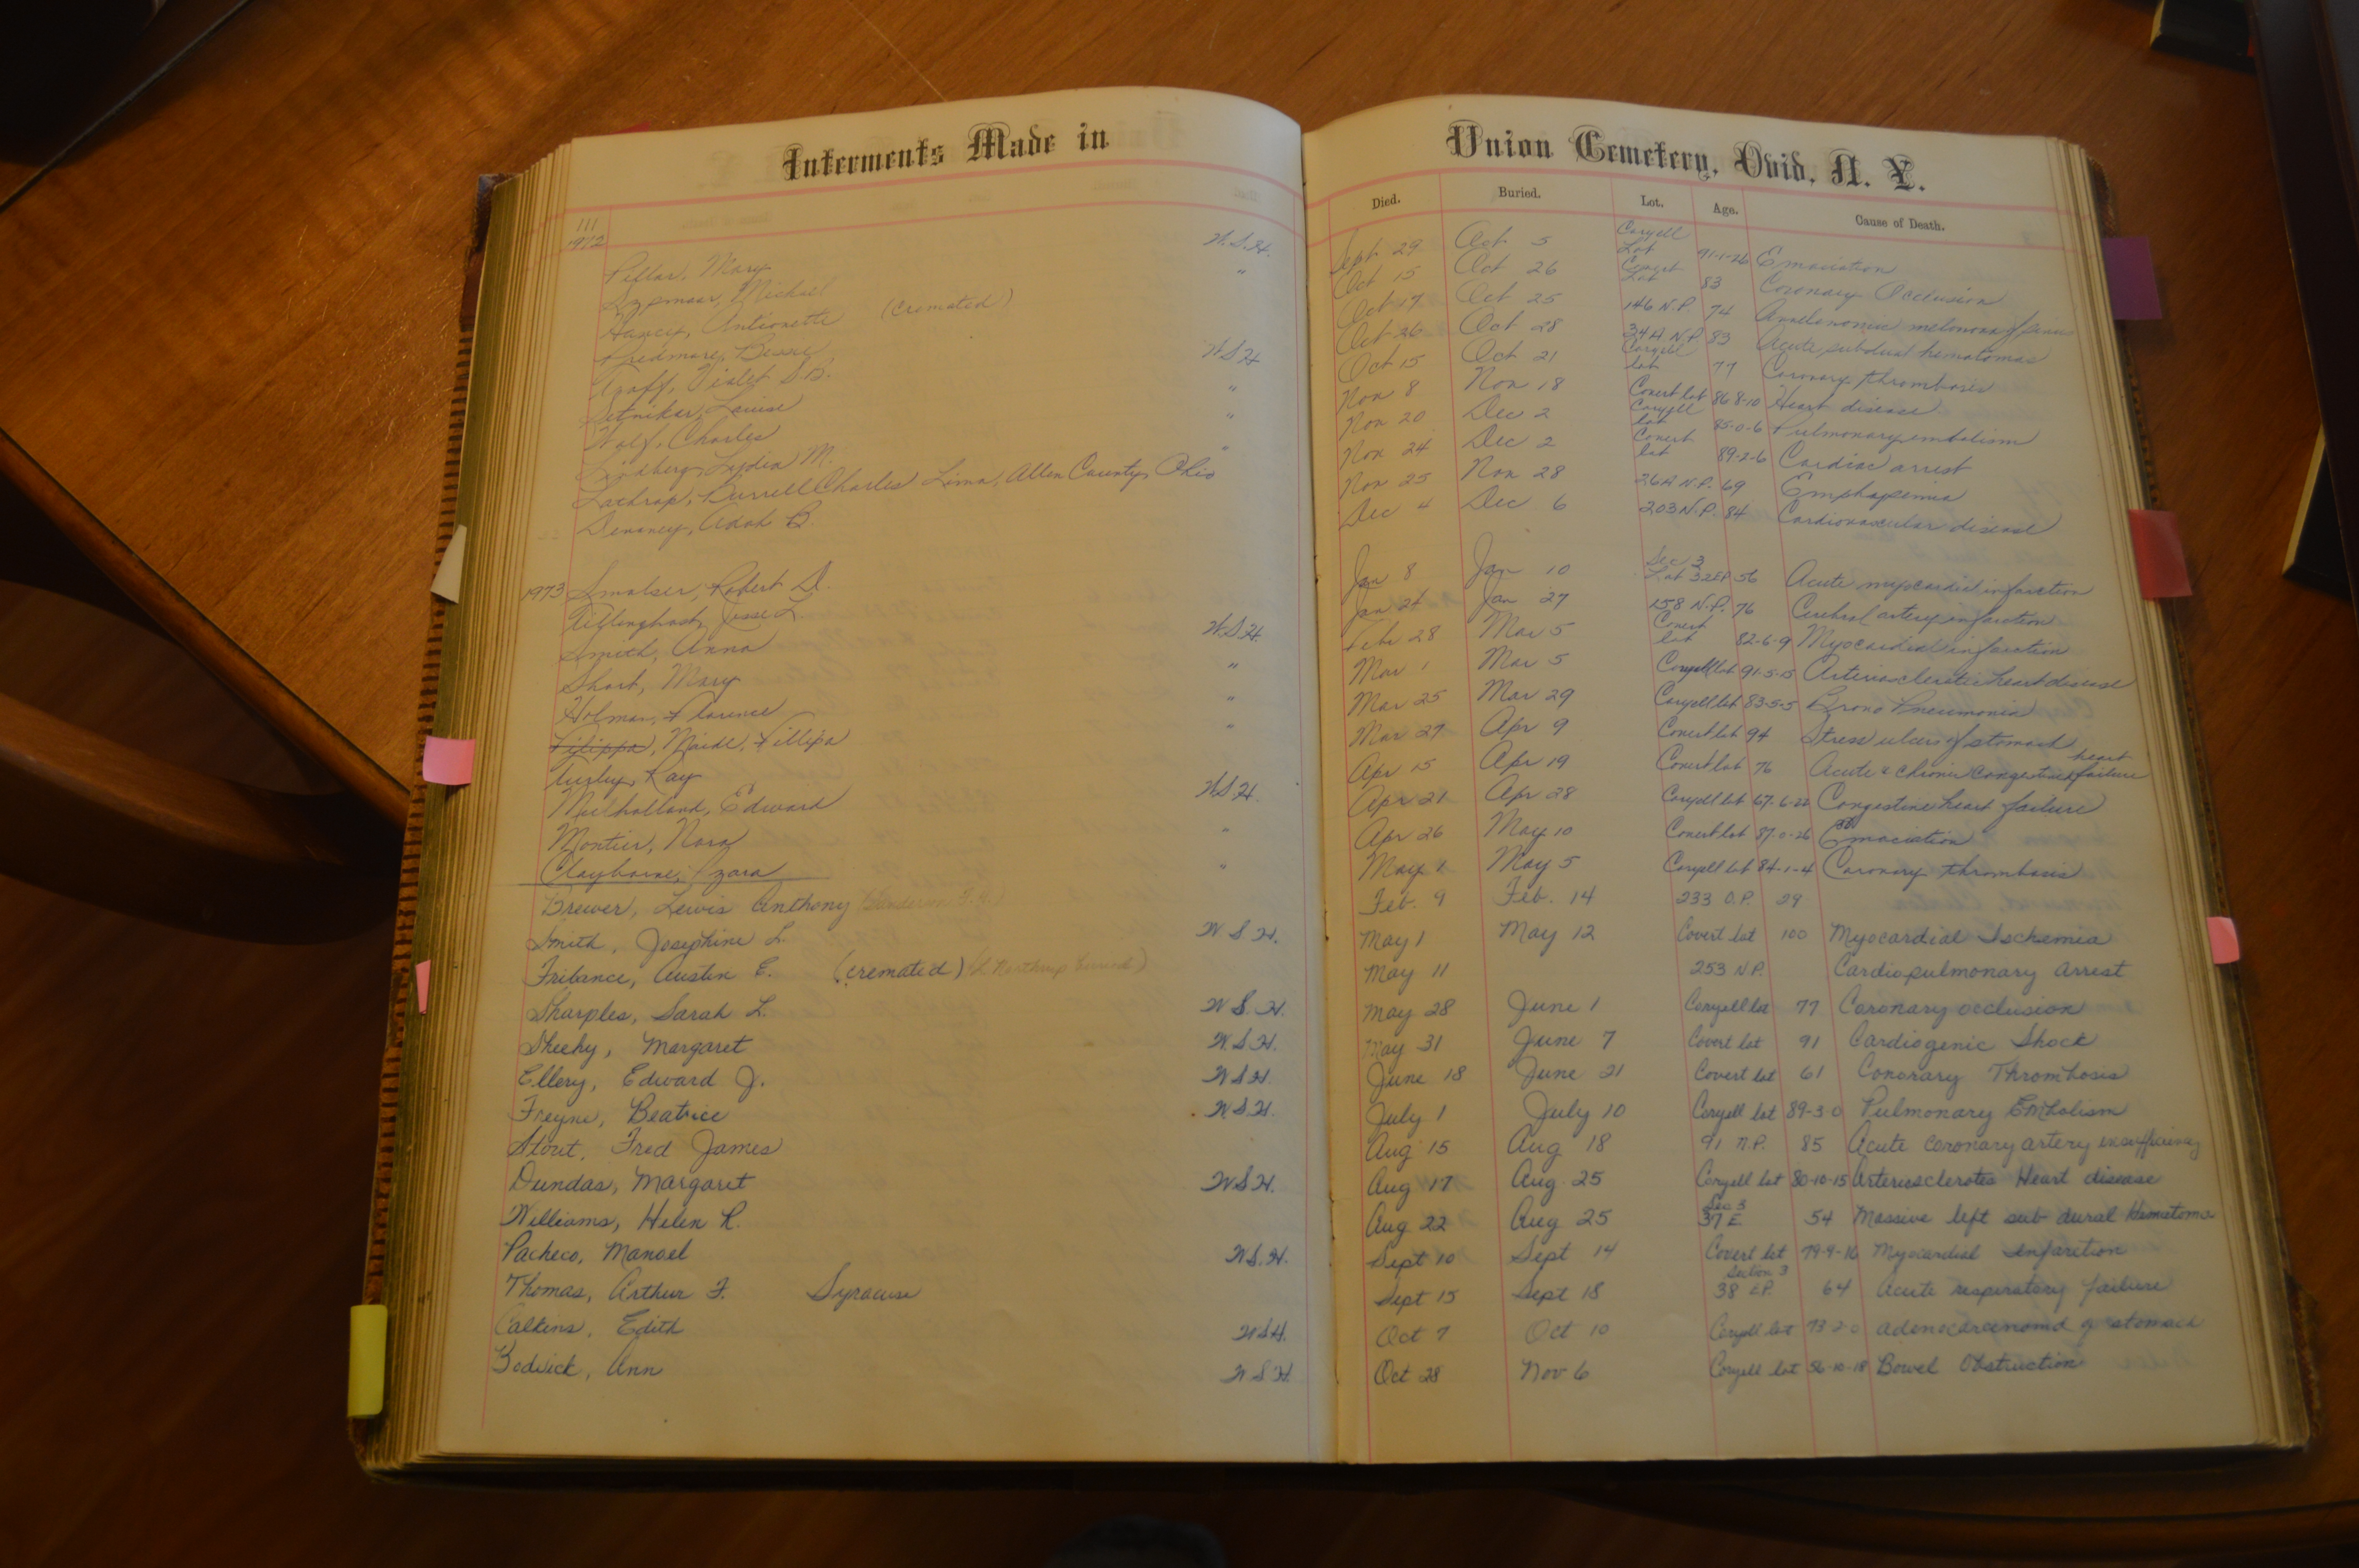 Interments Made in Union Cemetery, Ovid, N. Y.
Died. Buried. Lot. Age. Cause of Death.
111
1972
Pillar, Mary W.S.H. Sept 29 Oct 5 Coryell Lot 91-1-26 Emaciation
Michael " Oct 15 Oct 26 Covert Lot 83 Coronary Occlusion
Antionette (Cremated) Oct 17 Oct 25 146 N.P. 74
Predmore, Oct 26 Oct 28 34H N.P. 83 Acute subdural hematomas
Graff, Violet S.B. W.S.H. Oct 15 Oct 21 Coryell lot 77 Coronary thrombosis
Setnikar, Louise " Nov 8 Nov 18 Covert lot 86 8-10 Heart disease
Wolf, Charles " Nov 20 Dec 2 Coryell lot 85-0-6 Pulmonary embolism
Lydia M. " Nov 24 Dec 2 Covert lot 89-2-6 Cardiac arrest
Lathrop, Burrell Charles Lima, Allen County, Ohio Nov 25 Nov 28 26A N.P. 69
Devaney, Adah B. Dec 4 Dec 6 203 N.P. 84 Cardiovascular disease
1973 Smalser, Robert D. Jan 8 Jan 10 Sec 3 Lot 32EP 56 Acute myocardial infarction
Tillinghast, Jesse L. Jan 24 Jan 27 158 N.P. 76 Cerebral artery infarction
Smith, Anna W.S.H. Feb 28 Mar 5 Covert lot 82-6-9 Myocardial infarction
Short, Mary " Mar 1 Mar 5 Coryell lot 91-5-15 Arteriosclerotic heart disease
Holman, Florence " Mar 25 Mar 29 Coryell lot 83-5-5 Brono Pneumonia
Filippa, Maide, Fillipa " Mar 27 Apr 9 Covert lot 94 Stress ulcers of stomach
Ray Apr 15 Apr 19 Covert lot 76 Acute & chronic congestive heart failure
Mulholland, Edward W.S.H. Apr 21 Apr 28 Coryell lot 67-6-22 Congestive heart failure
Montier, Nora " Apr 26 May 10 Covert lot 87-0-26 Emaciation
Clayborne, Izora " May 1 May 5 Coryell lot 84-1-4 Coronary thrombosis
Brewer, Lewis Anthony Feb. 9 Feb. 14 233 O.P. 29
Smith, Josephine L. W S H. May 1 May 12 Covert lot 100 Myocardial Ischemia
Fribance, Austin E. (cremated) (L Northrup buried) May 11 253 N.P. Cardiopulmonary arrest
Sharples, Sarah L. W S. H. May 28 June 1 Coryell lot 77 Coronary occlusion
Sheehy, Margaret W.S.H. May 31 June 7 Covert lot 91 Cardiogenic Shock
Ellery, Edward J. W S H. June 18 June 21 Covert lot 61 Conorary Thrombosis
Freyne, Beatrice W.S.H. July 1 July 10 Coryell lot 89-3-0 Pulmonary Embolism
Stout, Fred James Aug 15 Aug 18 91 N.P. 85 Acute coronary artery insufficiency
Dundas, Margaret W S H. Aug 17 Aug 25 Coryell lot 80-10-15 Arteriosclerotes Heart disease
Williams, Helen R. Aug 22 Aug 25 Sec 3 37 E 54 Massive left sub dural Hematoma
Pacheco, Manoel W S. H. Sept 10 Sept 14 Covert lot 79-9-16 Myocardial Infarction
Thomas, Arthur F. Syracuse Sept 15 Sept 18 Section 3 38 E.P. 64 Acute respiratory failure
Calkins, Edith W S H. Oct 7 Oct 10 Coryell lot 73-2-0 Adenocarcinoma of stomach
Bodvick, Ann W S H. Oct 28 Nov 6 Coryell lot 56-10-18 Bowel Obstruction